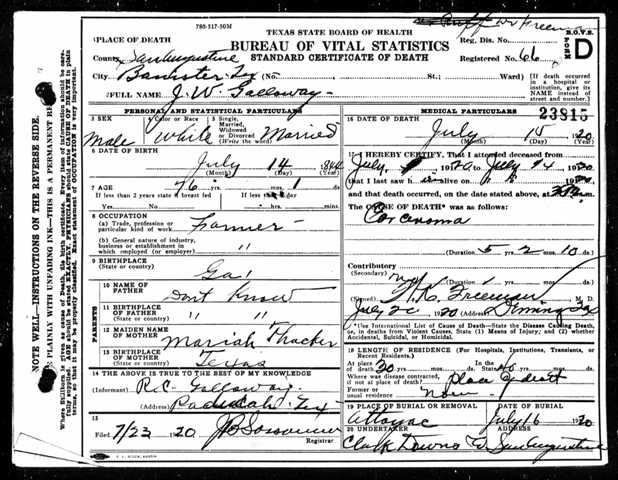 780-317-50M
TEXAS STATE BOARD OF HEALTH
BUREAU OF VITAL STATISTICS
STANDARD CERTIFICATE OF DEATH
W Freeman
Reg. Dis. No.
Registered No. 66
B.O.V.S. FORM D
PLACE OF DEATH
County San Augustine
City Bannister Tex (No. St.; Ward)
[If death occurred in a hospital or institution, give its NAME instead of street and number.]
FULL NAME J. W. Galloway
PERSONAL AND STATISTICAL PARTICULARS
3 SEX Male
4 Color or Race White
5 Single, Married, Widowed or Divorced (Write the word) Married
6 DATE OF BIRTH
July 14 1844
(Month) (Day) (Year)
7 AGE 76 yrs. mos. 1 ds.
If less than 2 years state if breast fed If less than 1 day
Yes No hrs. mins.
8 OCCUPATION
(a) Trade, profession or particular kind of work Farmer
(b) General nature of industry, business or establishment in which employed (or employer) "
9 BIRTHPLACE
(State or country) Ga
PARENTS
10 NAME OF FATHER Dont Know
11 BIRTHPLACE OF FATHER (State or country) " "
12 MAIDEN NAME OF MOTHER Mariah Thacker
13 BIRTHPLACE OF MOTHER (State or country) Texas
14 THE ABOVE IS TRUE TO THE BEST OF MY KNOWLEDGE
(Informant) R.C. Galloway
(Address) Paducah Tex
15
Filed 7/23 1920
Registrar
MEDICAL PARTICULARS
23815
16 DATE OF DEATH
July 15 1920
(Month) (Day) (Year)
I HEREBY CERTIFY, That I attended deceased from
July, 1920, to July 1920
that I last saw h alive on 1920
and that death occurred, on the date stated above, at m.
The CAUSE OF DEATH* was as follows:
Carcinoma
(Duration) 5 yrs. 2 mos. 10 ds.
Contributory
(Secondary)
(Duration) yrs. mos. ds.
(Signed) W. K. Freeman M. D.
July 20 1920 (Address) Tex
*Use International List of Cause of Death—State the Disease Causing Death, or, in deaths from Violent Causes, State (1) Means of Injury; and (2) whether Accidental, Suicidal, or Homicidal.
18 LENGTH OF RESIDENCE (For Hospitals, Institutions, Transients, or Recent Residents.)
At place of death 20 In the State 40
Where was disease contracted, if not at place of death? Place of death
Former or usual residence
19 PLACE OF BURIAL OR REMOVAL
DATE OF BURIAL
Attoyac July 16 1920
20 UNDERTAKER
Clark Downs San Augustine
NOTE WELL—INSTRUCTIONS ON THE REVERSE SIDE.
PLAINLY WITH UNFADING INK—THIS IS A PERMANENT